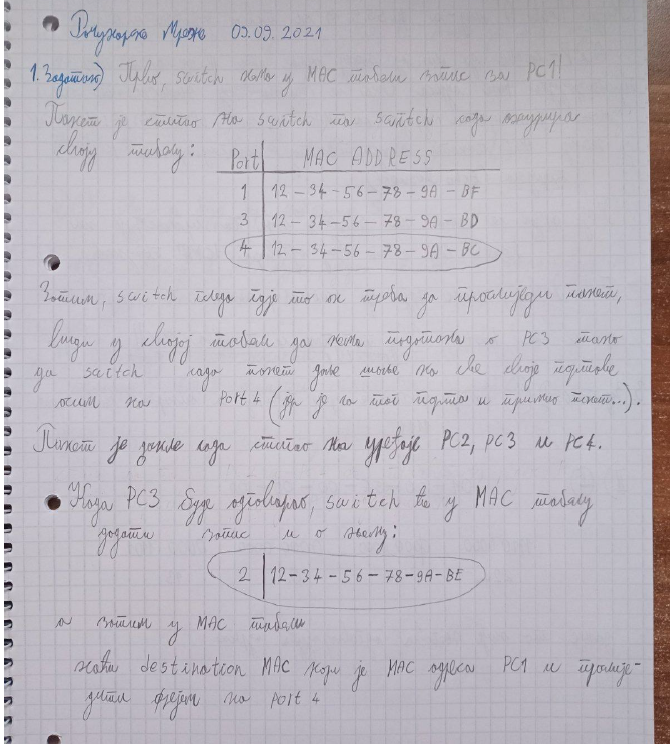 Рачунарске Мреже 09.09.2021
1. Задатак) Прво, switch нема у MAC табели запис за PC1!
Пакет је стигао на switch па switch сада ажурира
своју табелу:
Port MAC ADDRESS
1 12-34-56-78-9A-BF
3 12-34-56-78-9A-BD
4 12-34-56-78-9A-BC
Затим, switch гледа гдје то он треба да прослиједи пакет,
види у својој табели да нема података о PC3 тако
да switch сада пакет даље шаље на све своје портове
осим на Port 4 (јер је са тог порта и примио пакет...).
Пакет је дакле сада стигао на уређаје PC2, PC3 и PC4.
Када PC3 буде одговарао, switch ће у MAC табелу
додати запис и о њему:
2 12-34-56-78-9A-BE
а затим у MAC табели
наћи destination MAC који је MAC адреса PC1 и прослије-
дити фрејм на Port 4